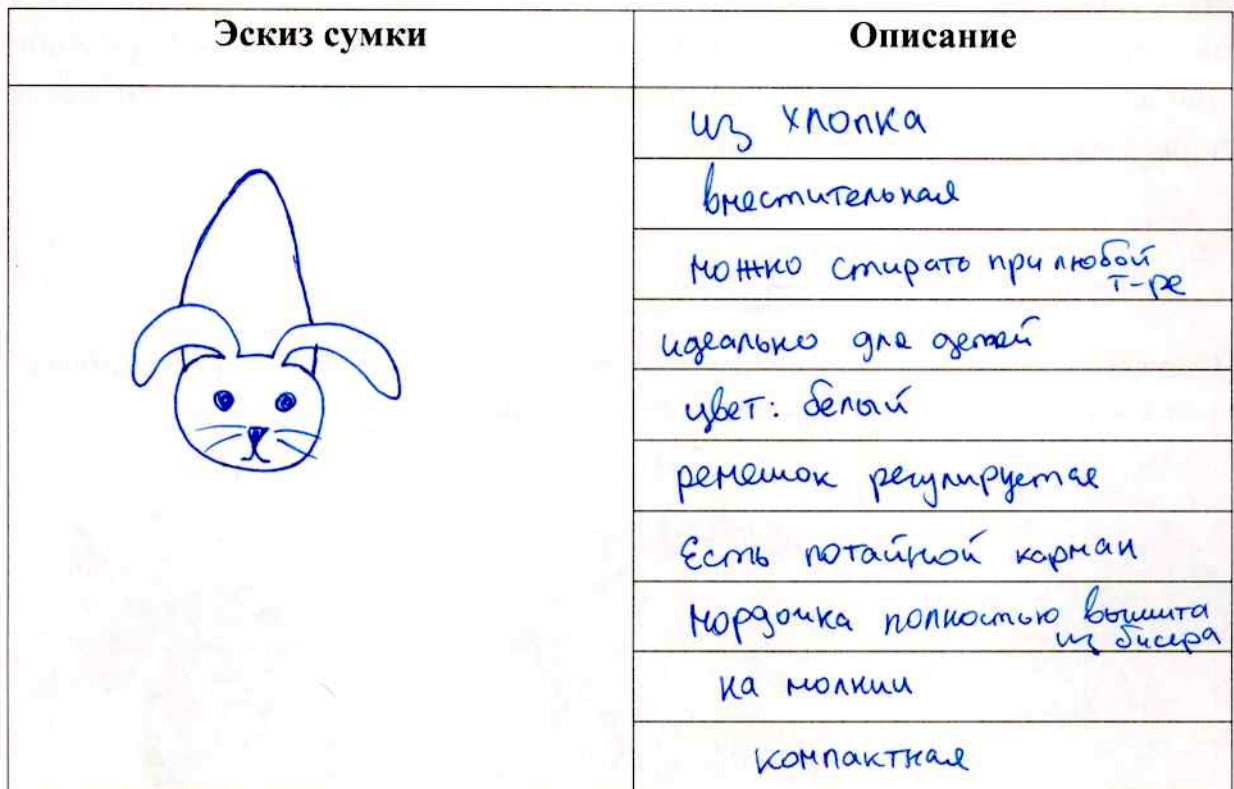 Эскиз сумки
Описание
из хлопка
вместительная
можно стирать при любой
т-ре
идеально для детей
цвет: белый
ремешок регулируется
Есть потайной карман
мордочка полностью вышита
из бисера
на молнии
компактная